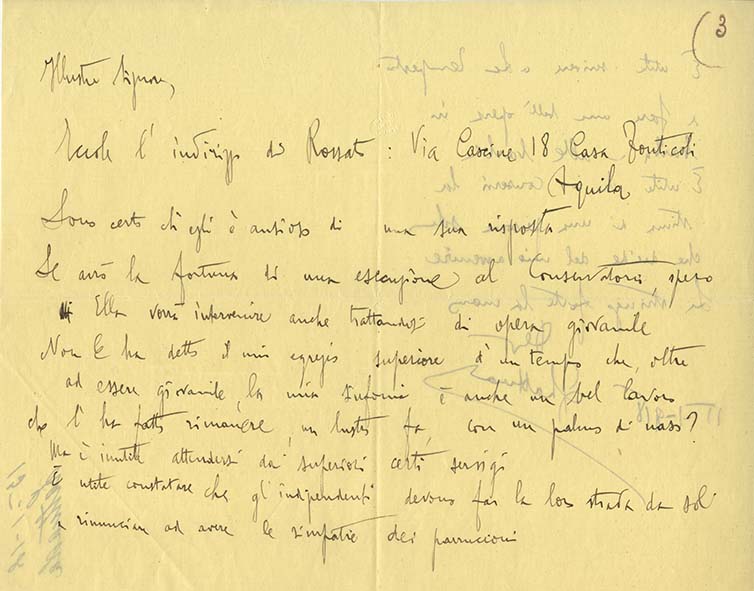 3
Illustre Signore,
Eccole l'indirizzo di Rossato: Via Cascine 18 Casa Fonticoli
Aquila
Sono certo ch'egli è ansioso di una sua risposta
Se avrò la fortuna di una esecuzione al Conservatorio, spero
Ella vorrà intervenire anche trattandosi di opera giovanile
Non Le ha detto il mio egregio superiore d'un tempo che, oltre
ad essere giovanile, la mia sinfonia è anche un bel lavoro
che l'ha fatto rimanere, un lustro fa, con un palmo di naso?
Ma è inutile attendersi dai superiori certi servigi
È utile constatare che gl'indipendenti devono far la loro strada da soli
e rinunciare ad avere le simpatie dei parrucconi